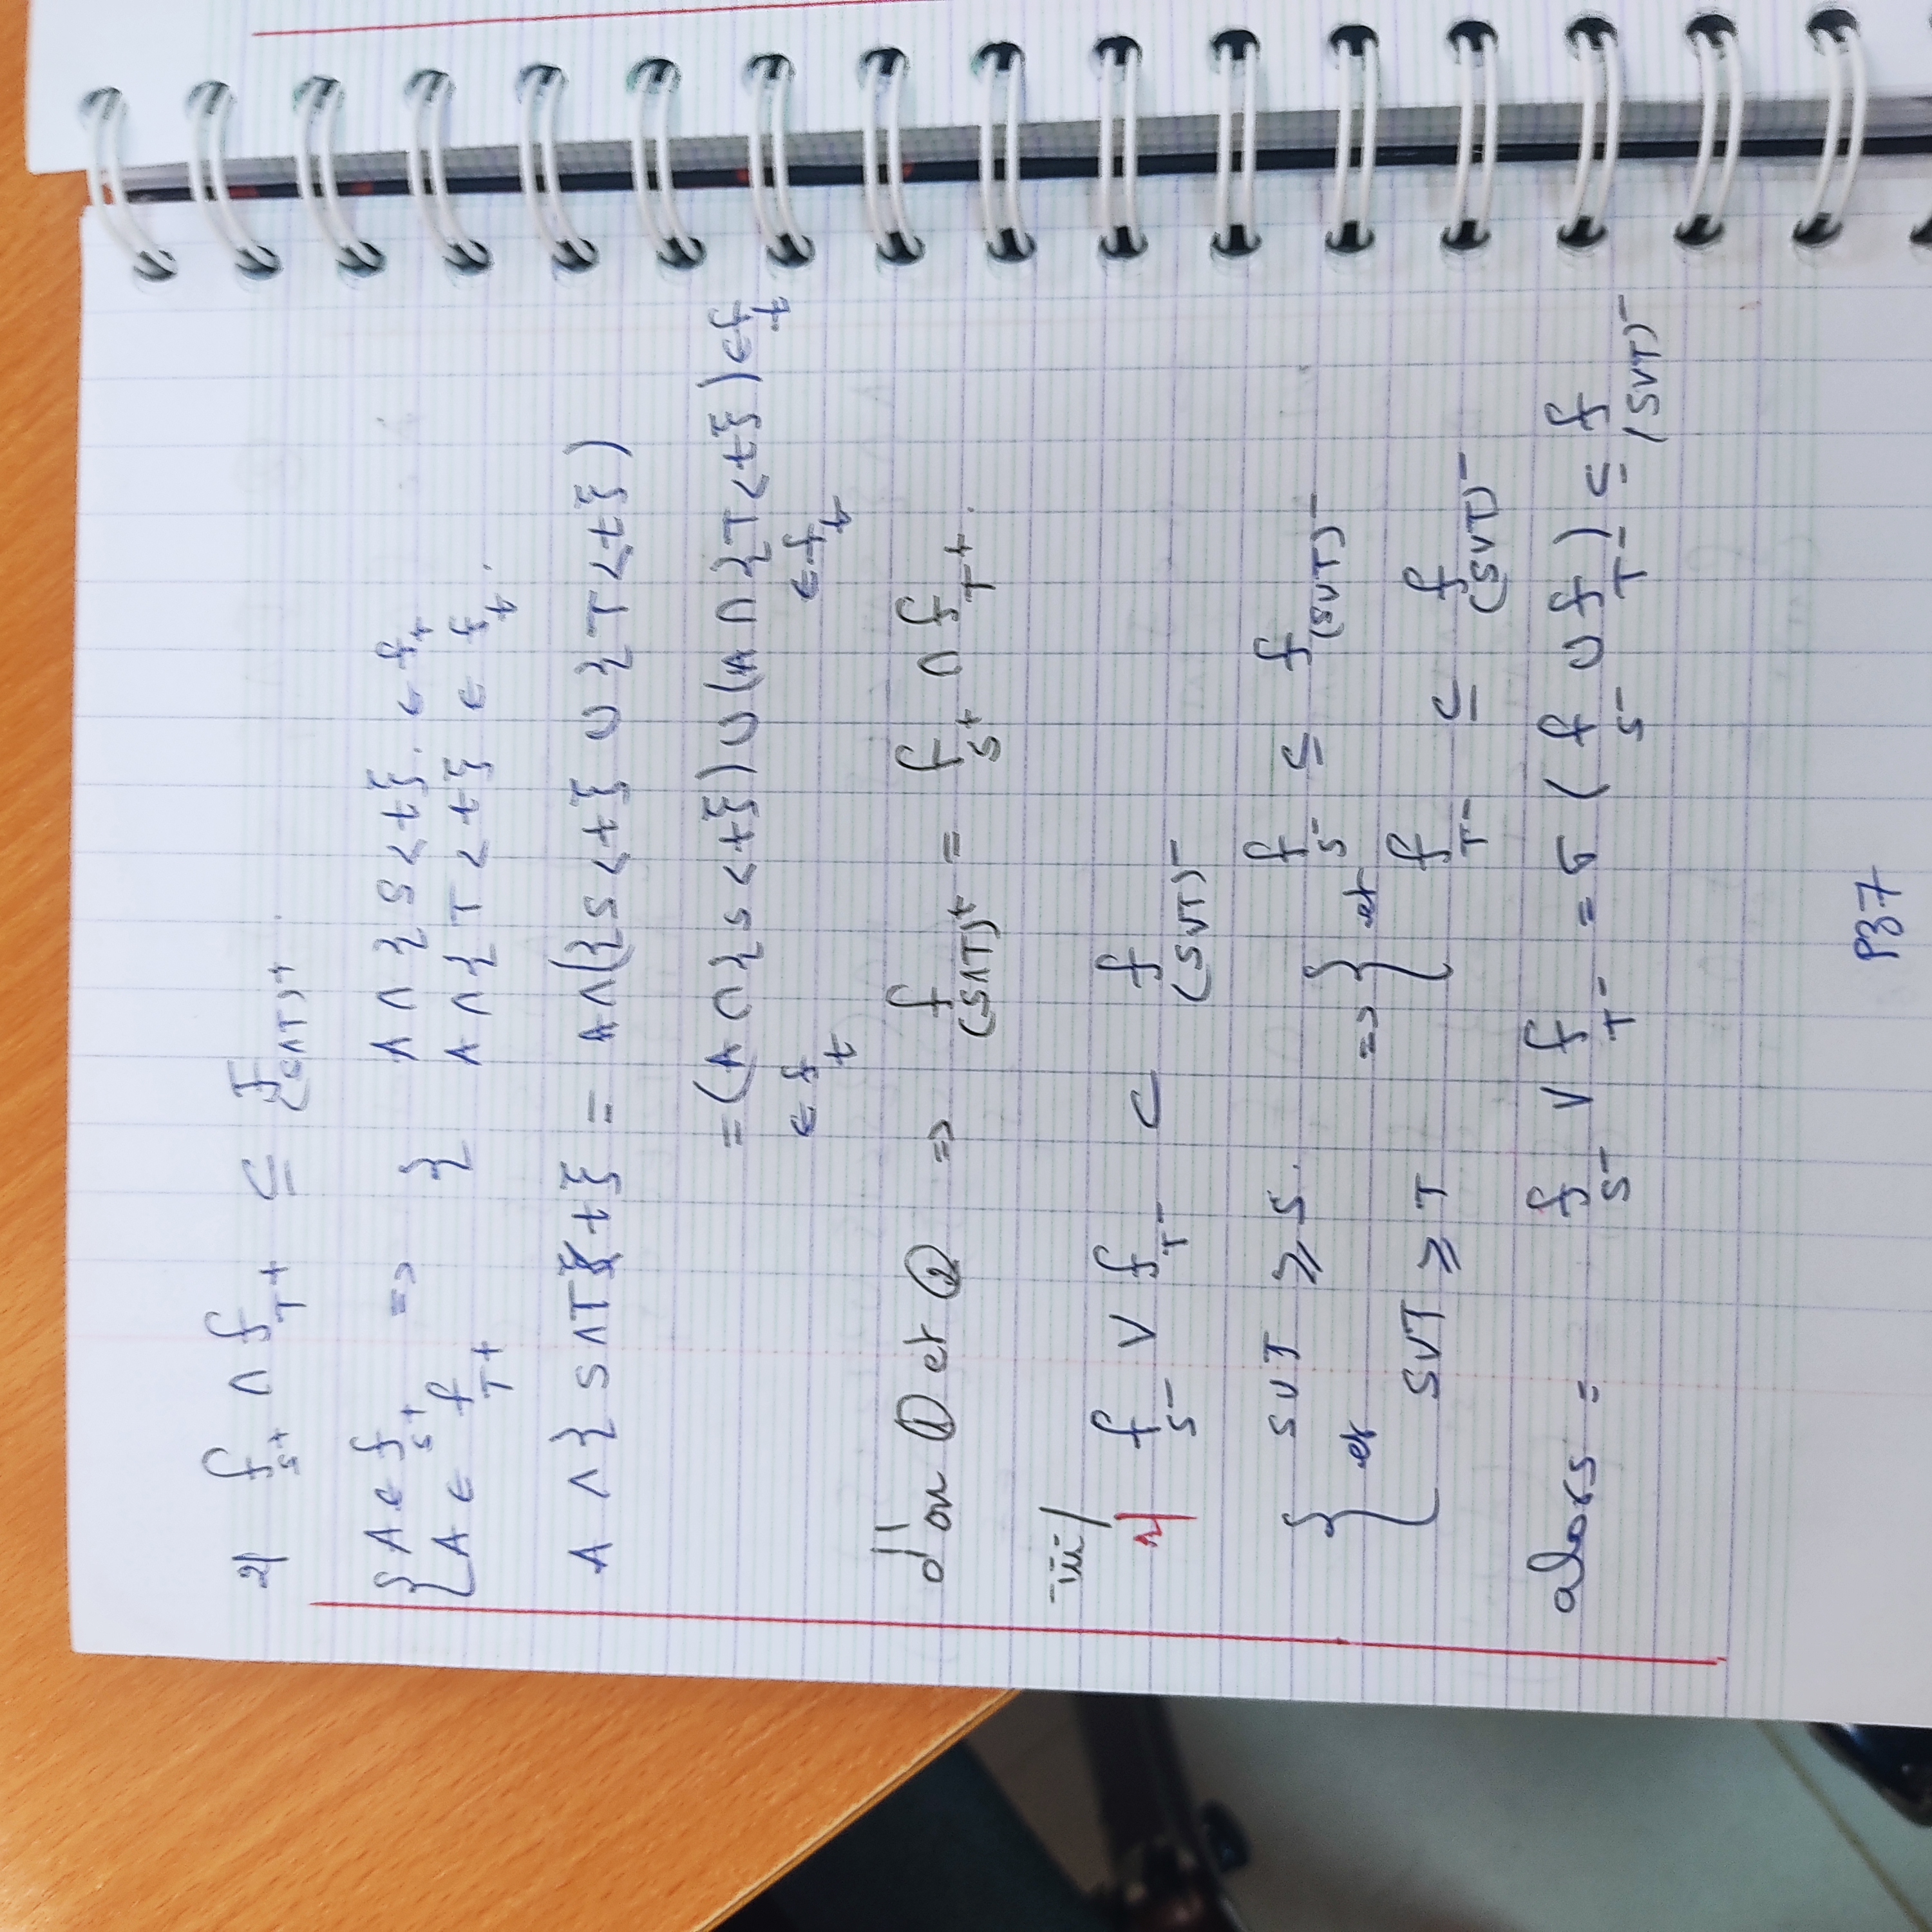 2/ f_{S^+} ∩ f_{T^+} ⊆ F_{(S∧T)^+}.
{ A ∈ f_{S^+} => { A ∩ {S < t}. ∈ f_t
A ∈ f_{T^+} A ∩ {T < t} ∈ f_t.
A ∩ {S∧T < t} = A ∩ ({S < t} ∪ {T < t})
= (A ∩ {S < t}) ∪ (A ∩ {T < t}) ∈ f_t
∈ f_t ∈ f_t
d'où ① et ② => f_{(S∧T)^+} = f_{S^+} ∩ f_{T^+}.
iii/
1/ f_{S^-} ∨ f_{T^-} ⊂ f_{(S∨T)^-}
{ S∨T ⩾ S. { f_{S^-} ⊆ f_{(S∨T)^-}
et => et
S∨T ⩾ T f_{T^-} ⊆ f_{(S∨T)^-}
alors = f_{S^-} ∨ f_{T^-} = σ ( f_{S^-} ∪ f_{T^-} ) ⊆ f_{(S∨T)^-}
P37